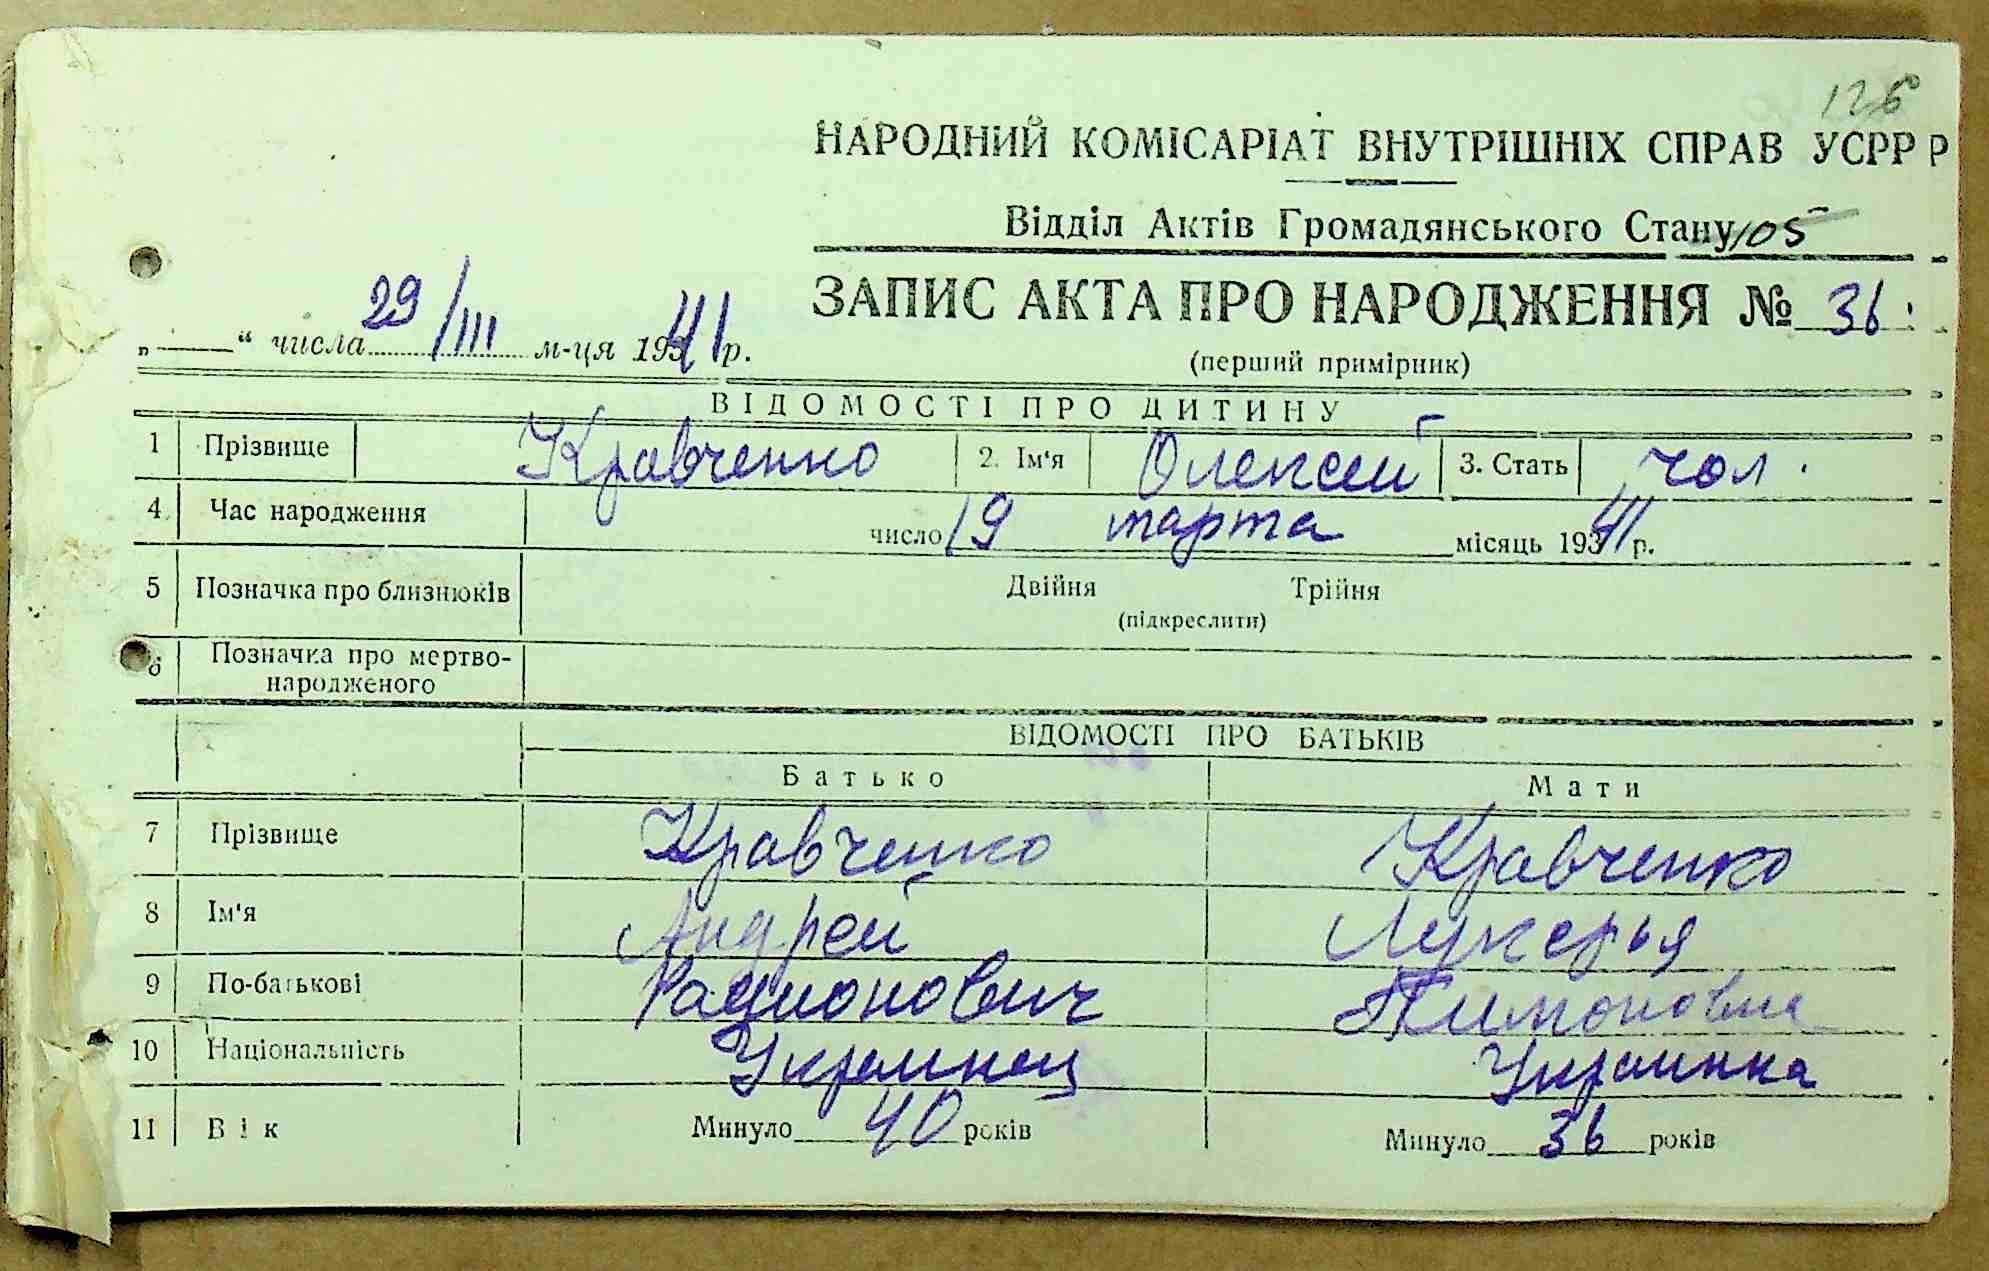 126
НАРОДНИЙ КОМІСАРІАТ ВНУТРІШНІХ СПРАВ УСРР Р
Відділ Актів Громадянського Стану 105
ЗАПИС АКТА ПРО НАРОДЖЕННЯ № 36
„ “ числа 29/III м-ця 1941 р.
(перший примірник)
ВІДОМОСТІ ПРО ДИТИНУ
1 Прізвище Кравченко 2. Ім'я Олексей 3. Стать чол.
4 Час народження число 19 марта місяць 1941 р.
5 Позначка про близнюків Двійня Трійня
(підкреслити)
6 Позначка про мертво-
народженого
ВІДОМОСТІ ПРО БАТЬКІВ
Батько Мати
7 Прізвище Кравченко Кравченко
8 Ім'я Андрей Лукерья
9 По-батькові Радионович Тимоновна
10 Національність Украинец Украинка
11 Вік Минуло 40 років Минуло 36 років